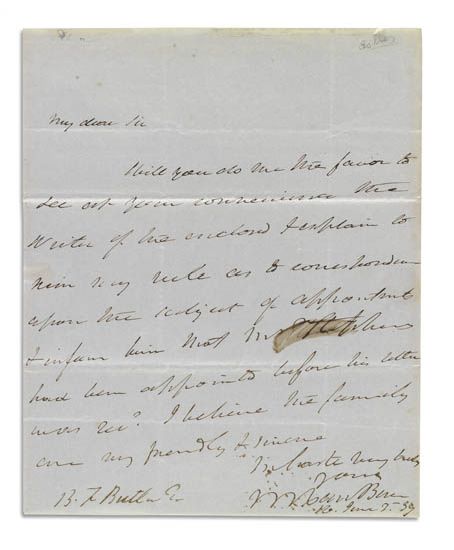 My dear Sir
Will you do me the favor to
see at your convenience the
writer of the enclosed & explain to
him my rule as to correspondence
upon the subject of appointmts
& inform him that Mr
had been appointed before his letter
was rec? I believe the family
are my friendly & sincere
In haste very truly
yours
M Van Buren
June 7. 39
B. F Butler Esq